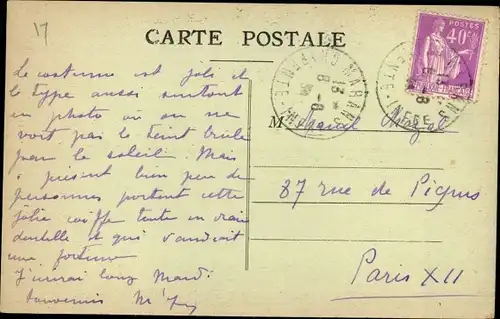 17
CARTE POSTALE
POSTES
40c
MARANS
13 *
8 -8
CHTE INFRE
Le costume est joli et
le type aussi surtout
en photo où on ne
voit pas le teint brûlé
par le soleil. Mais
à présent bien peu de
personnes portent cette
jolie coiffe toute en vraie
dentelle et qui vaudrait
une fortune
J'irai long Mardi
Souvenirs
M
87 rue de Picpus
Paris XII